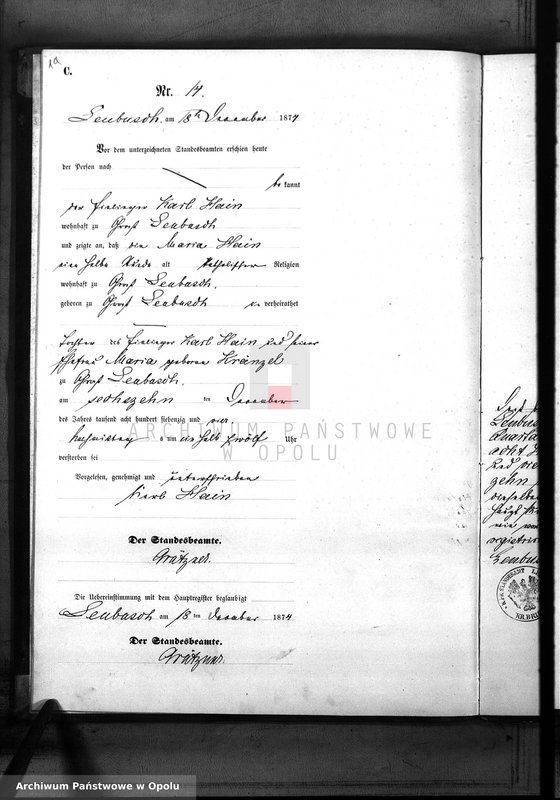 C.
Nr. 14.
Leubusch, am 18ten December 1874
Vor dem unterzeichneten Standesbeamten erschien heute
der Person nach
be kannt
der Einlieger Karl Hain
wohnhaft zu Groß Leubusch
und zeigte an, daß die Maria Hain
eine halbe Stunde alt katholischer Religion
wohnhaft zu Groß Leubusch,
geboren zu Groß Leubusch un verheirathet
Tochter des Einlieger Karl Hain und seiner
Ehefrau Maria geborene Kränzel
zu Groß Leubusch.
am sechszehn ten December
des Jahres tausend acht hundert siebenzig und vier
Nachmittag s um ein halb zwölf Uhr
verstorben sei
Vorgelesen, genehmigt und unterschrieben
Karl Hain
Der Standesbeamte.
Grätzner.
Die Uebereinstimmung mit dem Hauptregister beglaubigt
Leubusch am 18 ten December 1874
Der Standesbeamte.
Grätzner.
ARCHIWUM PAŃSTWOWE
W OPOLU
Archiwum Państwowe w Opolu